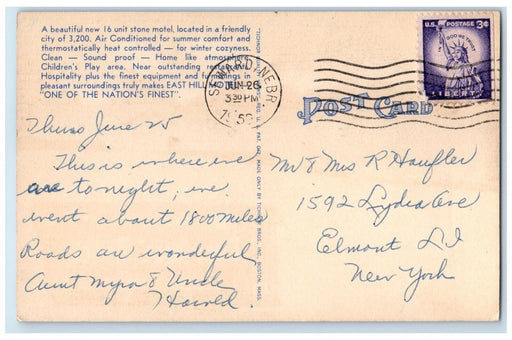 A beautiful new 16 unit stone motel, located in a friendly
city of 3,200. Air Conditioned for summer comfort and
thermostatically heat controlled — for winter cozyness.
Clean — Sound proof — Home like atmosphere
Children's Play area. Near outstanding restaurant
Hospitality plus the finest equipment and furnishings in
pleasant surroundings truly makes EAST HILL MOTEL
"ONE OF THE NATION'S FINEST".
SEWARD NEBR
JUN 26
3 30 PM
U.S. POSTAGE 3¢
IN GOD WE TRUST
LIBERTY
POST CARD
Thurs June 25
This is where we
are tonight, we
went about 1800 miles
Roads are wonderful
Aunt Myra & Uncle
Harold.
Mr & Mrs R Haufler
1592 Lydia Ave
Elmont L I
New York
MADE ONLY BY TICHNOR BROS. INC. BOSTON, MASS.